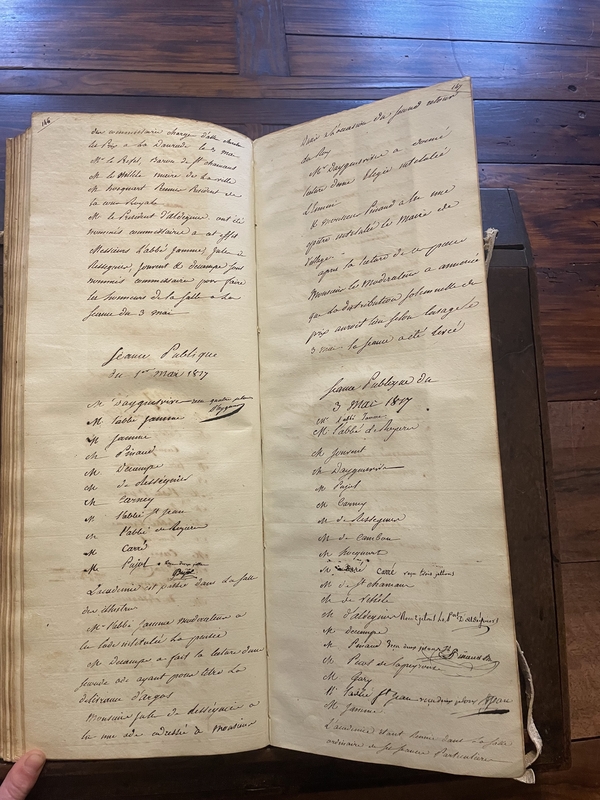 146
des commissaires chargés d'aller chercher
les Prix a La Daurade le 3 mai
Mr le Baron de St chamans
M. de maire de la ville
M. hocquart Premier Président de
la cour Royale
M. le Président d'aldéguier ont été
nommés commissaires a cet effet
Messieurs l'abbé Jamme, Jule de
Resseguier, Jouvent & decampe sont
nommés commissaires pour faire
les honneurs de la salle a la
seance du 3 mai
Séance Publique
du 1er mai 1817
M. Dayguesvive
M. l'abbé Jamme
M. Jamme
M. Pinaud
M. Decampe
M. de Resseguier
M. Carney
M. l'abbé St Jean
M. l'abbé de Rozieres
M. Carré
M. Pujol
L'academie est passée dans la salle
des illustres
M. l'abbé Jamme modérateur a
lu l'ode intitulée La pensée
M. Decampe a fait la lecture d'une
seconde ode ayant pour titre La
délivrance d'argos
Monsieur Jule de Resseguier a
lu une ode adressée a Monsieur
147
a l'occasion du second retour
du Roy
Mr Dayguesvive a donné
lecture d'une élégie intitulée
& monsieur Pinaud a lu une
épitre intitulée le Maire de
Village
après la lecture de ces pieces
Monsieur le modérateur a annoncé
que la distribution solennelle des
prix auroit lieu selon l'usage le
3 mai la seance a été levée
Seance Publique du
3 Mai 1817
M. l'abbé Jamme
M. l'abbé de Rozieres
M. Jouvent
M. Dayguesvive
M. Pujol
M. Carney
M. de Resseguier
M. de Cambon
M. hocquart
M. Carré
M. de St chamans
M. de
M. d'aldéguier
M. decampe
M. Pinaud
M. Picot de Lapeyrouse
M. Gary
M. l'abbé St Jean
M. Jamme
L'academie étant réunie dans la salle
ordinaire de ses séances Particulieres